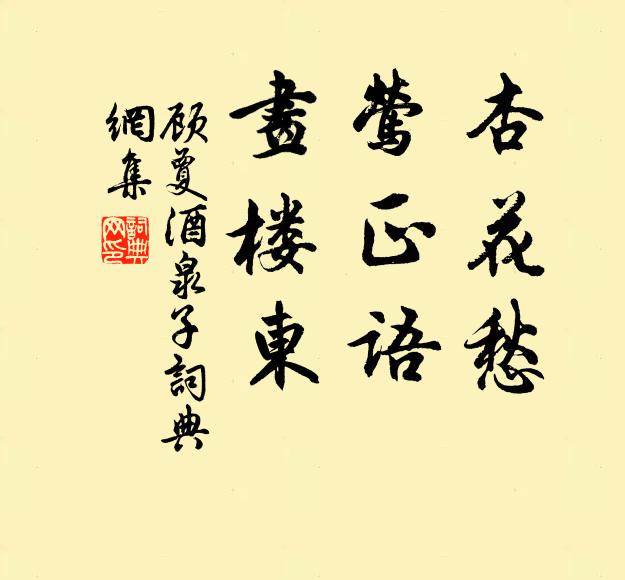 杏花愁
莺正语
畫楼東
顾夐酒泉子詞典
網集
詞典
网印